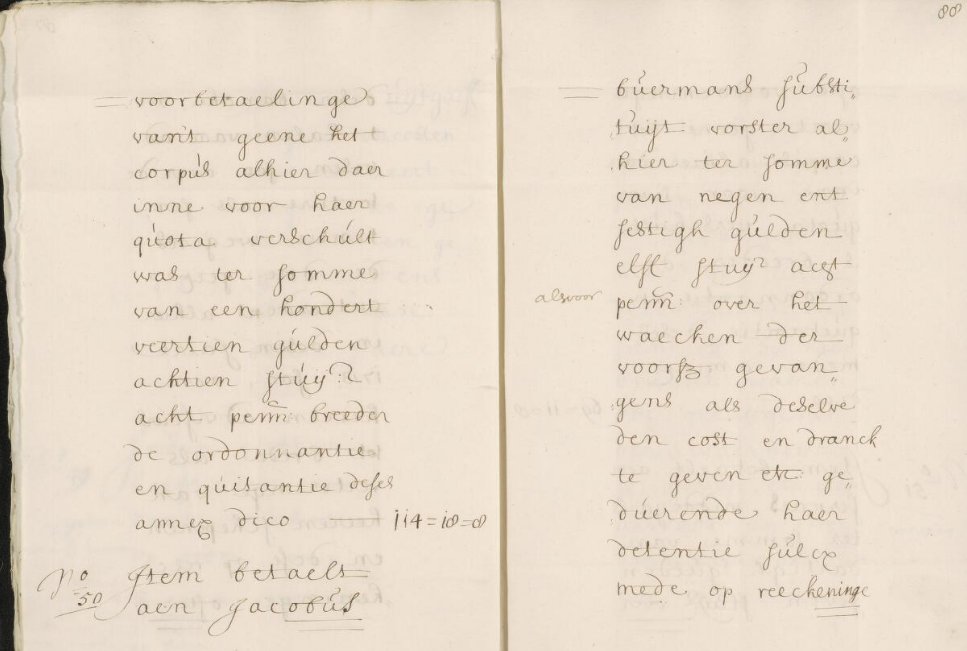 voorbetaelinge
van't geene het
corpús alhier daer
inne voor haer
qúota verschúlt
was ter somme
van een hondert
veertien gúlden
achtien stúyrs
acht penn: breeder
de ordonnantie
en qúitantie deses
annex dico 114=18=8
No 50 Item betaelt
aen Jacobús
88
búermans súbsti„
túijt vorster al„
hier ter somme
van negen ent
sestigh gúlden
elff stuyrs acht
alsvoor penn: over het
waecken der
voorsz gevan„
gens als deselve
den cost en dranck
te geven etc ge„
dúerende haer
detentie súlcx
mede op reeckeninge